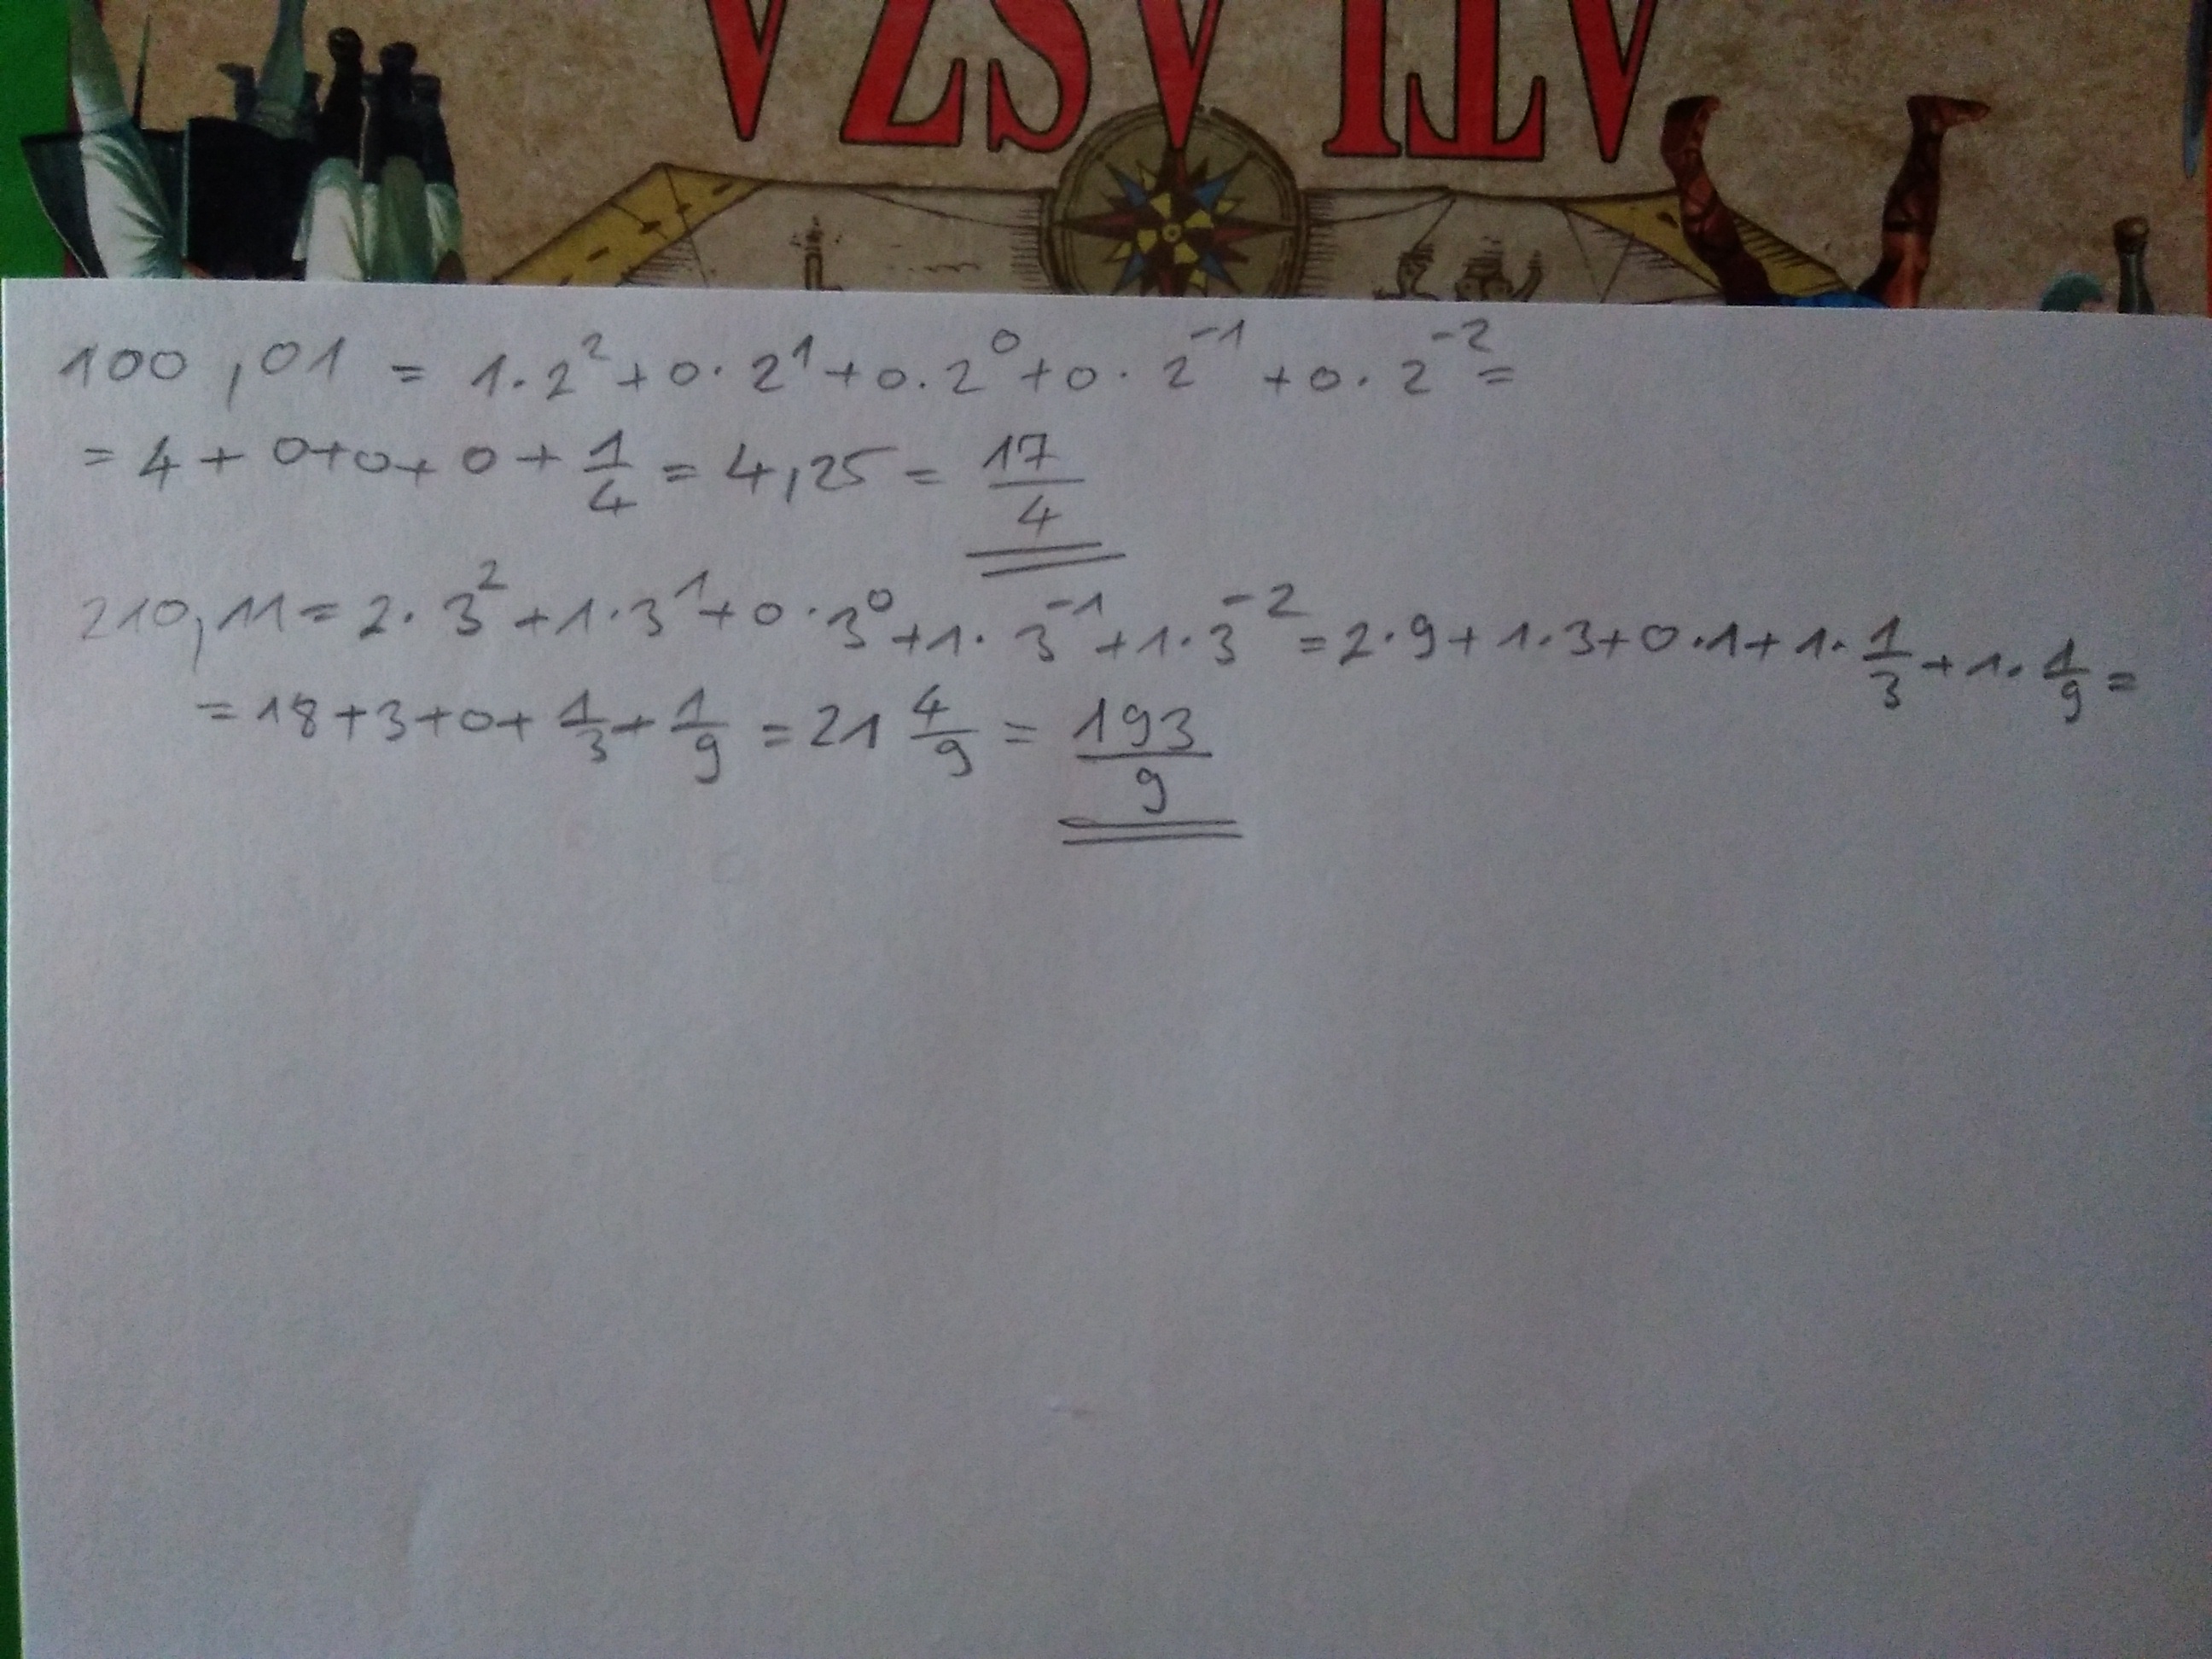 ATLASZA
100,01 = 1·2² + 0·2¹ + 0·2⁰ + 0·2⁻¹ + 0·2⁻² =
= 4 + 0+0+0 + 1/4 = 4,25 = 17/4
210,11 = 2·3² + 1·3¹ + 0·3⁰ + 1·3⁻¹ + 1·3⁻² = 2·9 + 1·3 + 0·1 + 1·1/3 + 1·1/9 =
= 18 + 3 + 0 + 1/3 + 1/9 = 21 4/9 = 193/9